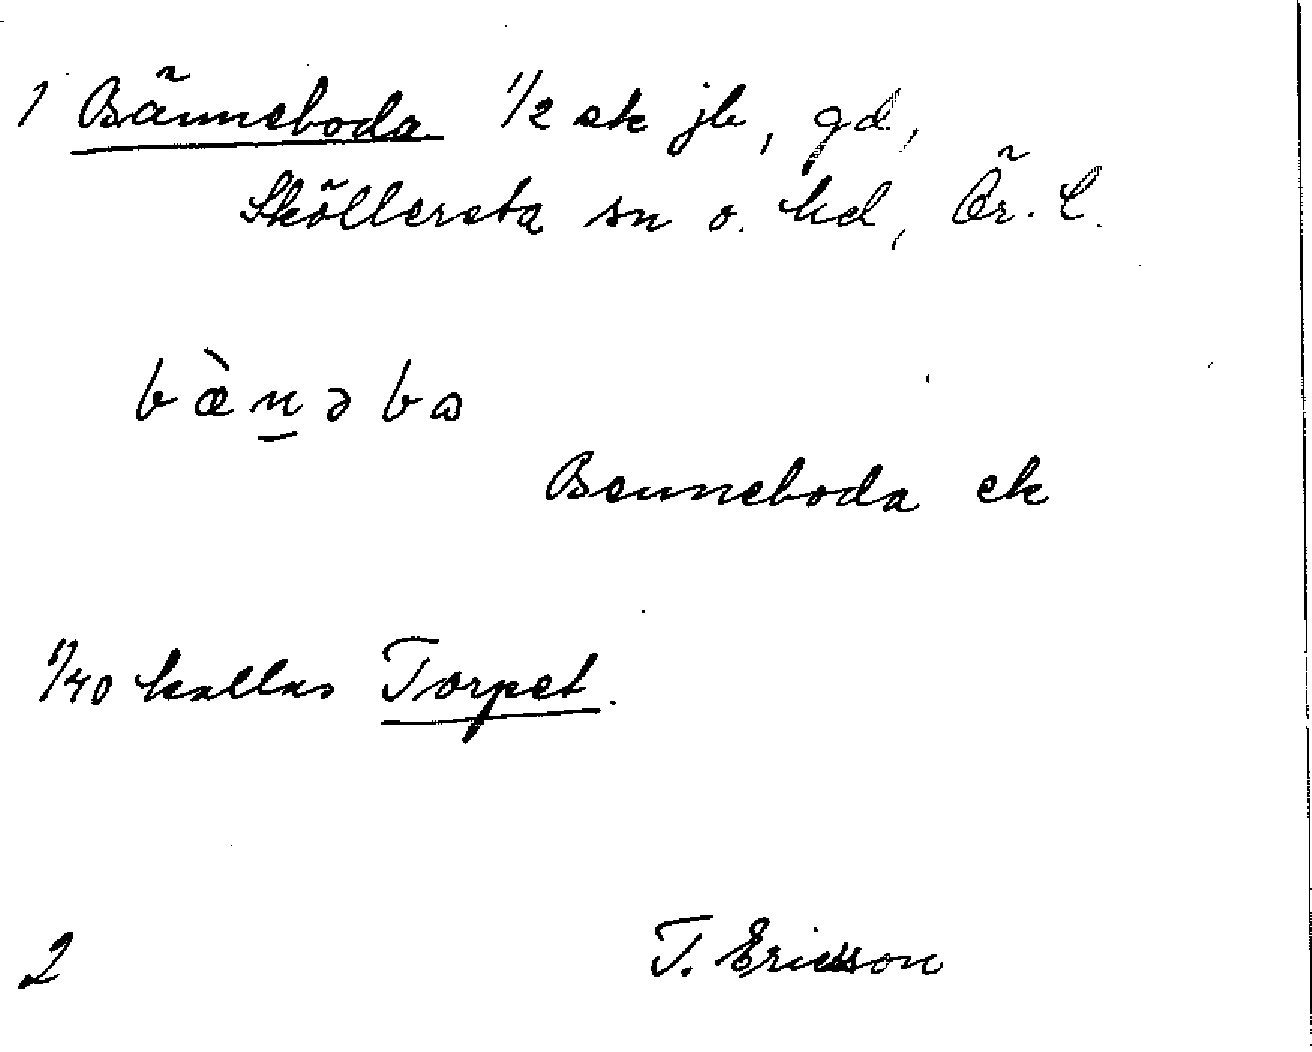 1 Bänneboda 1/2 ek jb, gd,
Sköllersta sn o. hd, Ör. l.
bæ̀n̠əbɷ
Benneboda ek
1/40 kallas Torpet.
2 T. Ericsson